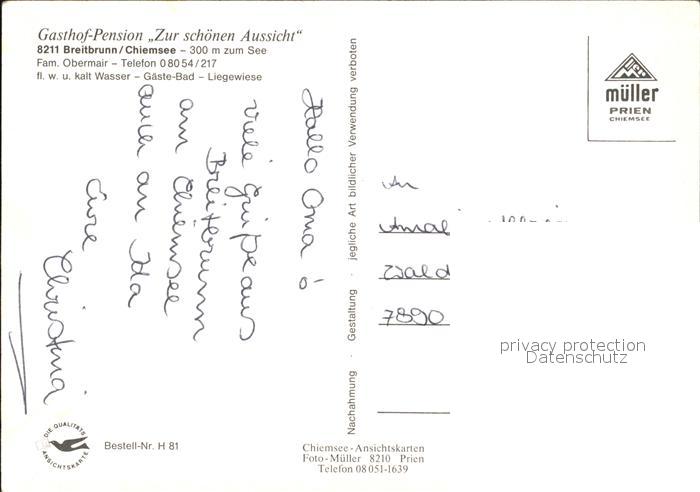 Gasthof-Pension „Zur schönen Aussicht“
8211 Breitbrunn/Chiemsee – 300 m zum See
Fam. Obermair – Telefon 08054/217
fl. w. u. kalt Wasser – Gäste-Bad – Liegewiese
Hallo Oma
Viele Grüße aus
Breitbrunn
am Chiemsee
auch an Ida
Eure
Christina
Nachahmung · Gestaltung · jegliche Art bildlicher Verwendung verboten
müller
PRIEN
CHIEMSEE
An
Wald
7890
privacy protection
Datenschutz
DIE QUALITÄTS
ANSICHTSKARTE
Bestell-Nr. H 81
Chiemsee-Ansichtskarten
Foto-Müller 8210 Prien
Telefon 08051-1639